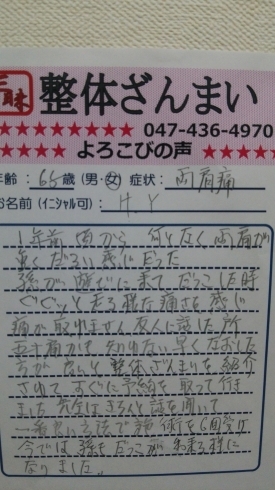 整体ざんまい
★★★★★★★★ 047-436-4970
★★★★ よろこびの声 ★★★★★
年齢：65歳（男・女）症状：両肩痛
お名前（イニシャル可）：H.Y
1年前頃から 何となく両肩が
重くだるい感じだった
孫が遊びに来て だっこした時
ぐぐっと走る様な痛さを感じ
痛が取れません友人に話した所
五十肩かも知れない早くなおした
方が良いと 整体ざんまいを紹介
されて すぐに予約を取って行き
ました 先生はきちんと話を聞いて
一番良い方法で施術を6回受け
今では 孫をだっこが 出来る様に
なりました。